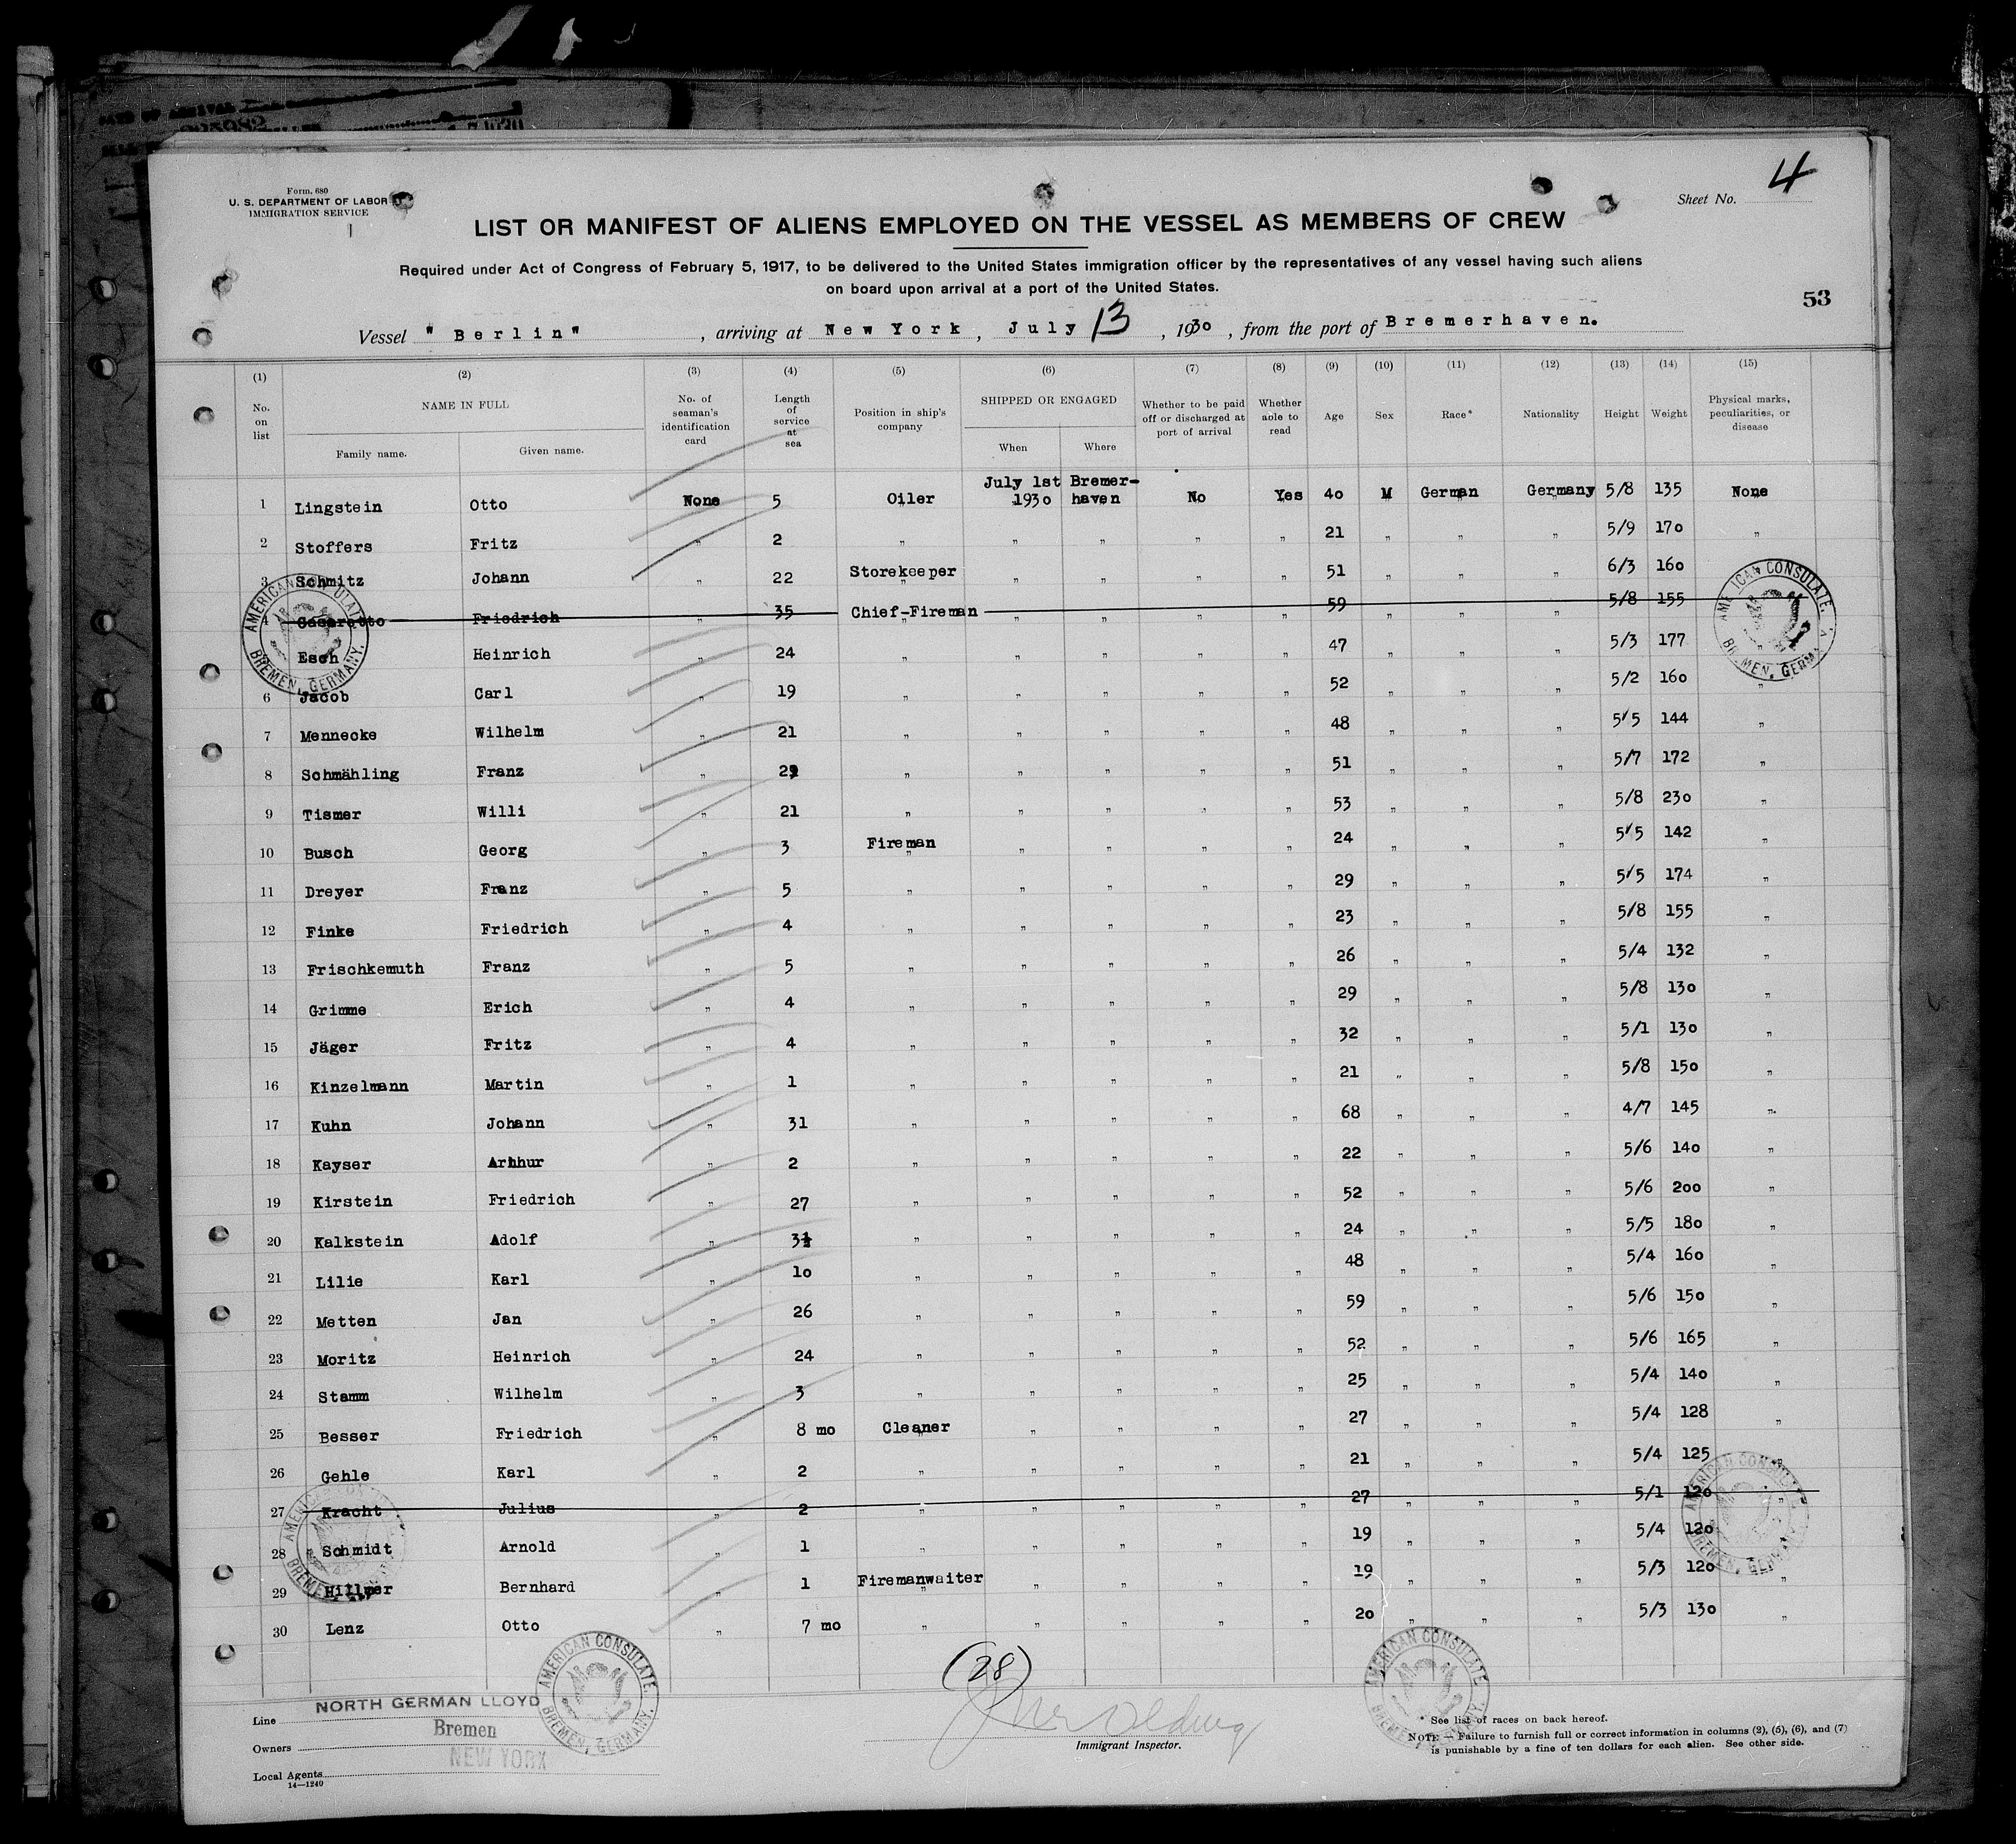 Form. 680
U. S. DEPARTMENT OF LABOR
IMMIGRATION SERVICE
Sheet No. 4
LIST OR MANIFEST OF ALIENS EMPLOYED ON THE VESSEL AS MEMBERS OF CREW
Required under Act of Congress of February 5, 1917, to be delivered to the United States immigration officer by the representatives of any vessel having such aliens
on board upon arrival at a port of the United States.
53
Vessel "Berlin", arriving at New York, July 13, 1930, from the port of Bremerhaven.
(1) (2) (3) (4) (5) (6) (7) (8) (9) (10) (11) (12) (13) (14) (15)
No. on list NAME IN FULL Family name. Given name. No. of seaman's identification card Length of service at sea Position in ship's company SHIPPED OR ENGAGED When Where Whether to be paid off or discharged at port of arrival Whether able to read Age Sex Race* Nationality Height Weight Physical marks, peculiarities, or disease
1 Lingstein Otto None 5 Oiler July 1st 1930 Bremer-haven No Yes 40 M German Germany 5/8 135 None
2 Stoffers Fritz " 2 " " " " " 21 " " " 5/9 170 "
3 Schmitz Johann " 22 Storekeeper " " " " 51 " " " 6/3 160
4 Friedrich " 35 Chief-Fireman " " " " 59 " " " 5/8 155
Esch Heinrich " 24 " " " " " 47 " " " 5/3 177 "
6 Jacob Carl " 19 " " " " " 52 " " " 5/2 160 "
7 Mennecke Wilhelm " 21 " " " " " 48 " " " 5/5 144 "
8 Schmähling Franz " " " " " " 51 " " " 5/7 172 "
9 Tismer Willi " 21 " " " " " 53 " " " 5/8 230 "
10 Busch Georg " 3 Fireman " " " " 24 " " " 5/5 142 "
11 Dreyer Franz " 5 " " " " " 29 " " " 5/5 174 "
12 Finke Friedrich " 4 " " " " " 23 " " " 5/8 155 "
13 Frischkemuth Franz " 5 " " " " " 26 " " " 5/4 132 "
14 Grimme Erich " 4 " " " " " 29 " " " 5/8 130 "
15 Jäger Fritz " 4 " " " " " 32 " " " 5/1 130 "
16 Kinzelmann Martin " 1 " " " " " 21 " " " 5/8 150 "
17 Kuhn Johann " 31 " " " " " 68 " " " 4/7 145 "
18 Kayser Arhhur " 2 " " " " " 22 " " " 5/6 140 "
19 Kirstein Friedrich " 27 " " " " " 52 " " " 5/6 200 "
20 Kalkstein Adolf " 3½ " " " " " 24 " " " 5/5 180 "
21 Lilie Karl " 10 " " " " " 48 " " " 5/4 160 "
22 Metten Jan " 26 " " " " " 59 " " " 5/6 150 "
23 Moritz Heinrich " 24 " " " " " 52 " " " 5/6 165 "
24 Stamm Wilhelm " 3 " " " " " 25 " " " 5/4 140 "
25 Besser Friedrich " 8 mo Cleaner " " " " 27 " " " 5/4 128 "
26 Gehle Karl " 2 " " " " " 21 " " " 5/4 125 "
27 Kracht Julius " 2 " " " " " 27 " " " 5/1 120 "
28 Schmidt Arnold " 1 " " " " " 19 " " " 5/4 120
29 Hillmer Bernhard " 1 Firemanwaiter " " " " 19 " " " 5/3 120 "
30 Lenz Otto " 7 mo " " " " " 20 " " " 5/3 130 "
AMERICAN CONSULATE. BREMEN, GERMANY.
AMERICAN CONSULATE. BREMEN, GERMANY.
AMERICAN CONSULATE. BREMEN, GERMANY.
AMERICAN CONSULATE. BREMEN, GERMANY.
AMERICAN CONSULATE. BREMEN, GERMANY.
AMERICAN CONSULATE. BREMEN, GERMANY.
(28)
Line NORTH GERMAN LLOYD
Bremen
Owners
NEW YORK
Local Agents
14—1240
Immigrant Inspector.
* See list of races on back hereof.
NOTE.—Failure to furnish full or correct information in columns (2), (5), (6), and (7)
is punishable by a fine of ten dollars for each alien. See other side.